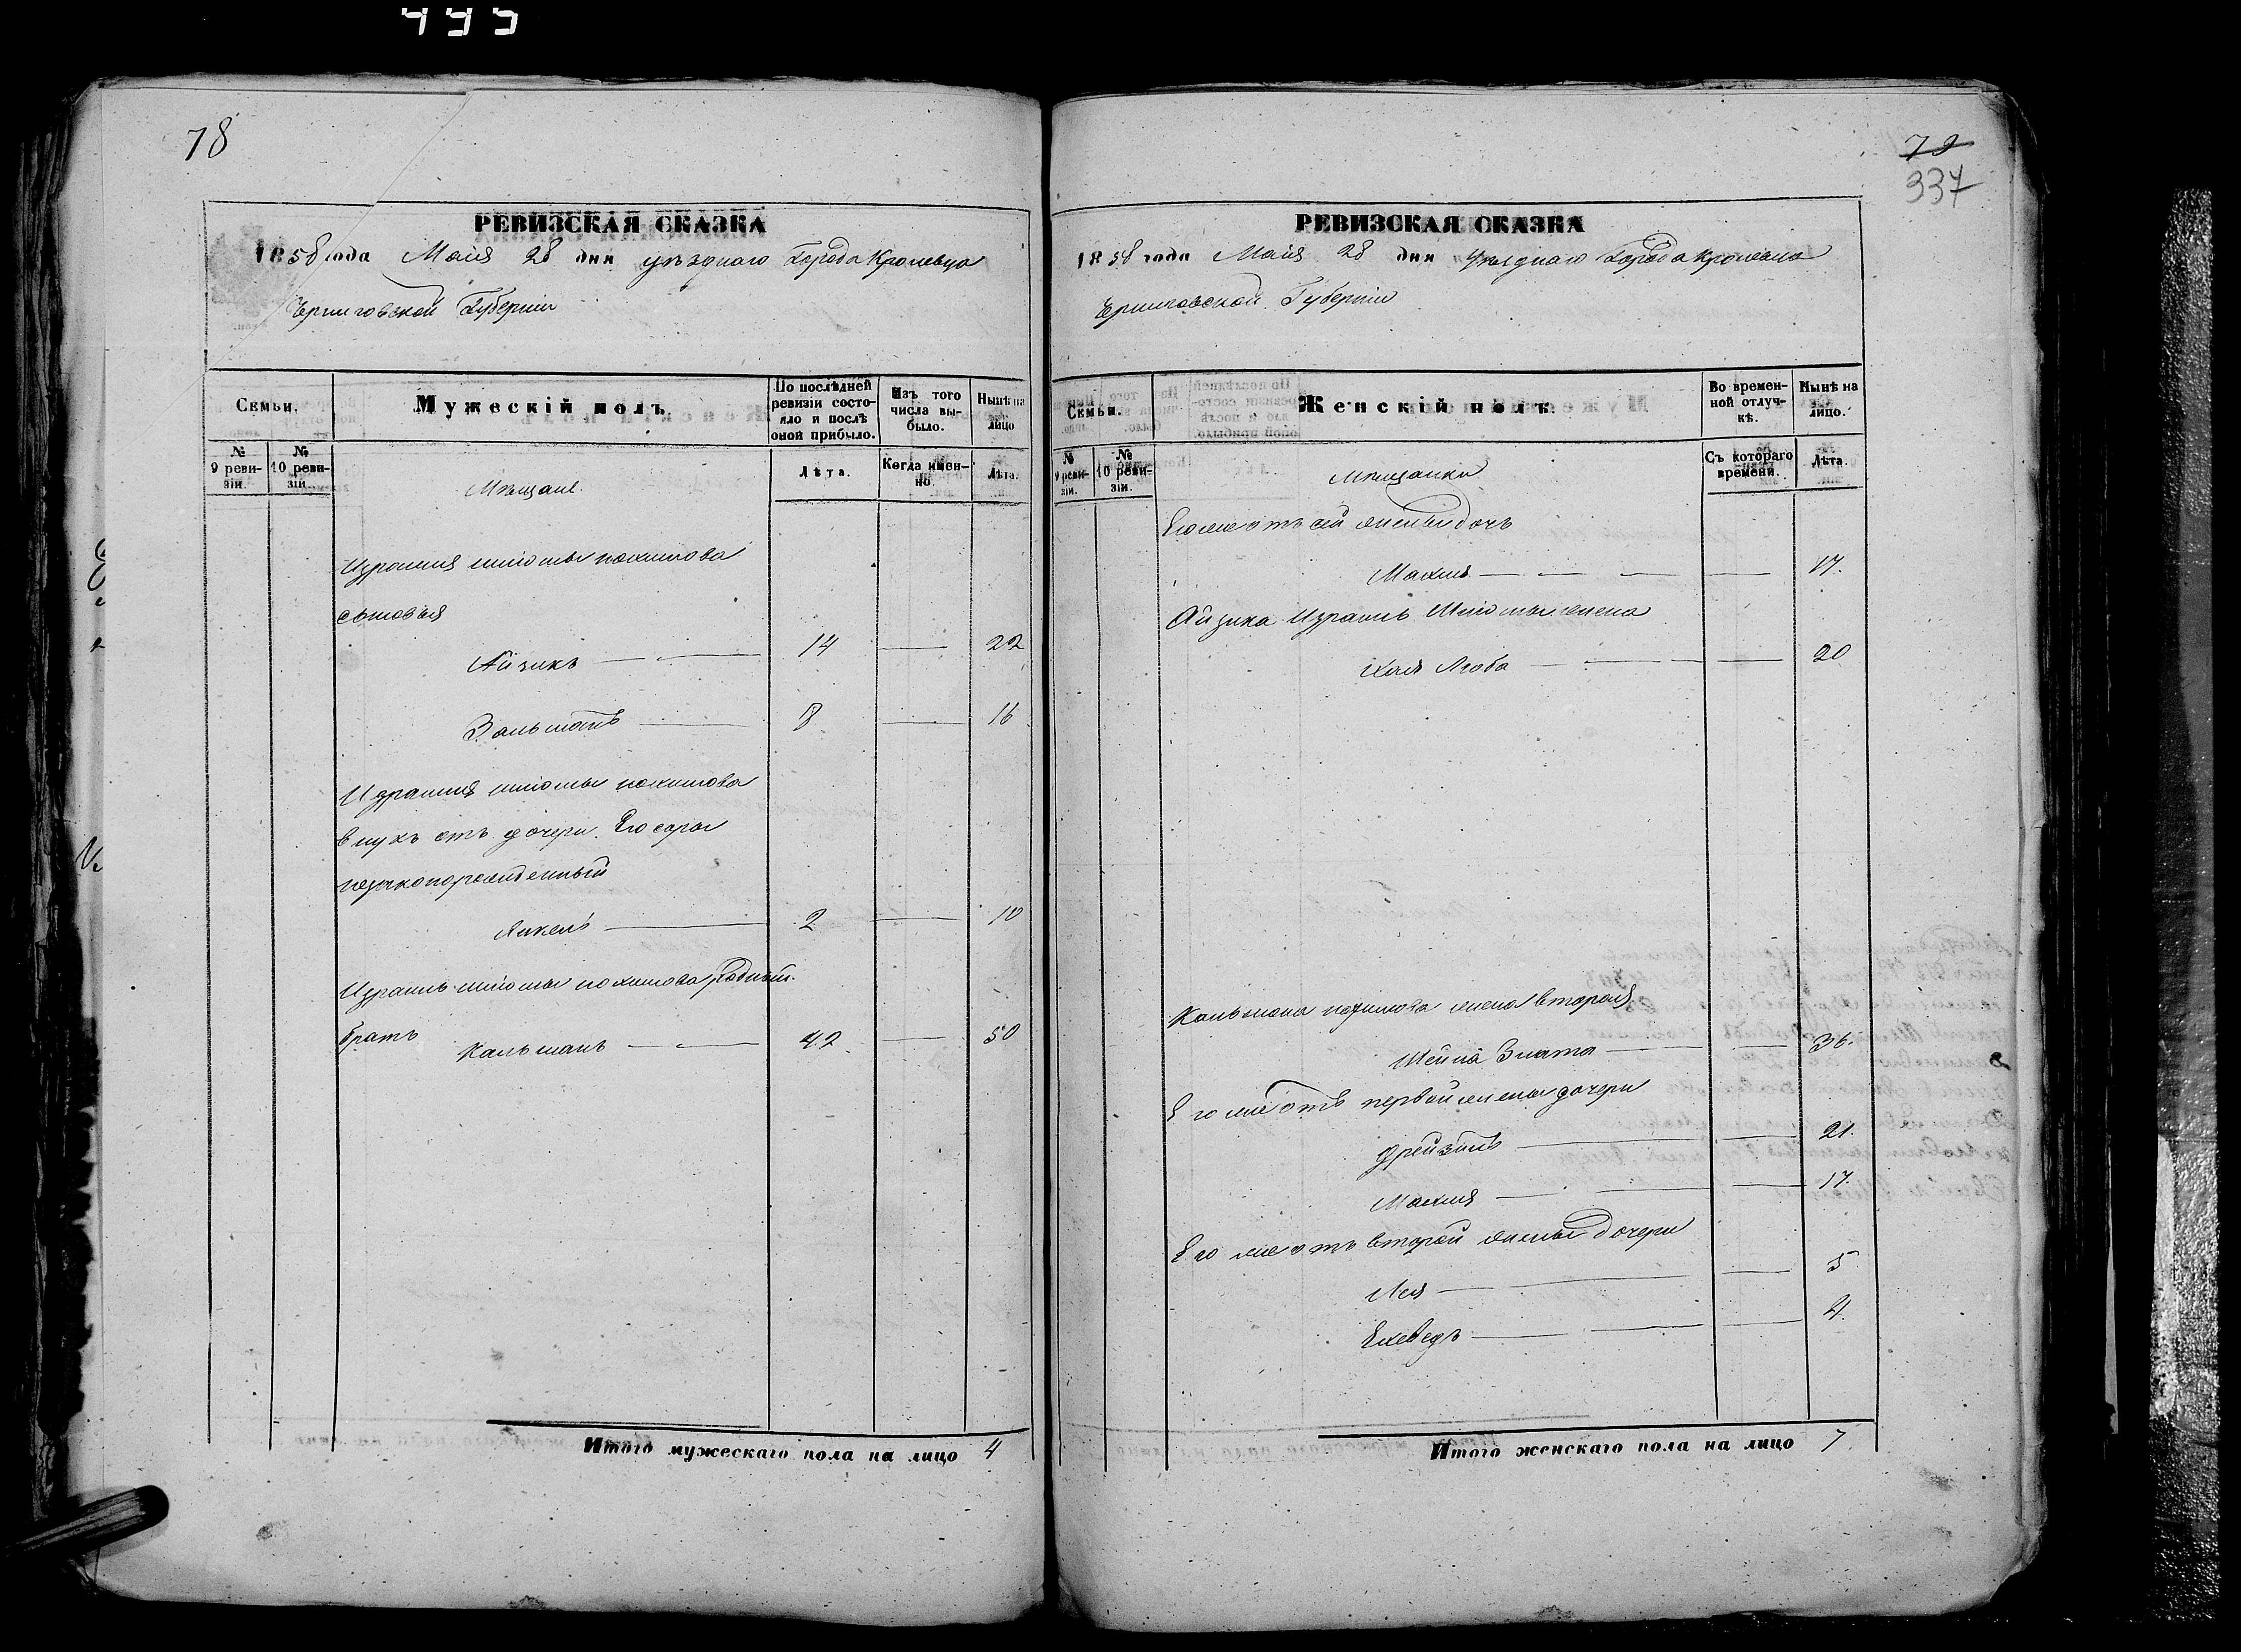 495
78
РЕВИЗСКАЯ СКАЗКА
1858 года Маія 28 дня уѣзднаго Города Кролевца
Черниговской Губерніи
Семьи.
Мужескій полъ.
По послѣдней ревизіи состояло и послѣ оной прибыло.
Изъ того числа выбыло.
Нынѣ на лицо
№ 9 ревизіи.
№ 10 ревизіи
Мѣщане.
Лѣта.
Когда именно.
Лѣта.
Израиля Шліомы Нохимова
сыновья
Айзикъ — — 14 — 22
Зальманъ — 8 — 16
Израиля Шліомы Нохимова
внукъ отъ дочери Его Сары
незаконорожденный
Янкель — 2 — 10
Израиль Шліомы Нохимова родный
братъ
Кальманъ — — 42 — 50
Итого мужескаго пола на лицо 4
79
337
РЕВИЗСКАЯ СКАЗКА
1858 года Маія 28 дня Уѣзднаго Города Кролевца
Черниговской Губерніи
Семьи.
Женскій полъ.
Во временной отлучкѣ.
Нынѣ на лицо.
№ 9 ревизіи.
№ 10 ревизіи.
Мѣщанки
Съ котораго времени.
Лѣта.
Его же отъ сей жены дочь
Махля — — — — 17.
Айзика Израиль Шліомы жена
Хая Люба — — — — 20
Кальмана Нохимова жена вторая
Шейна Злата — — 36.
Его же отъ первой жены дочери
Дрейзиль — — 21.
Махля — — — 17.
Его же отъ второй жены дочери
Лея — — 5
Ехеведъ — — — 4.
Итого женскаго пола на лицо 7